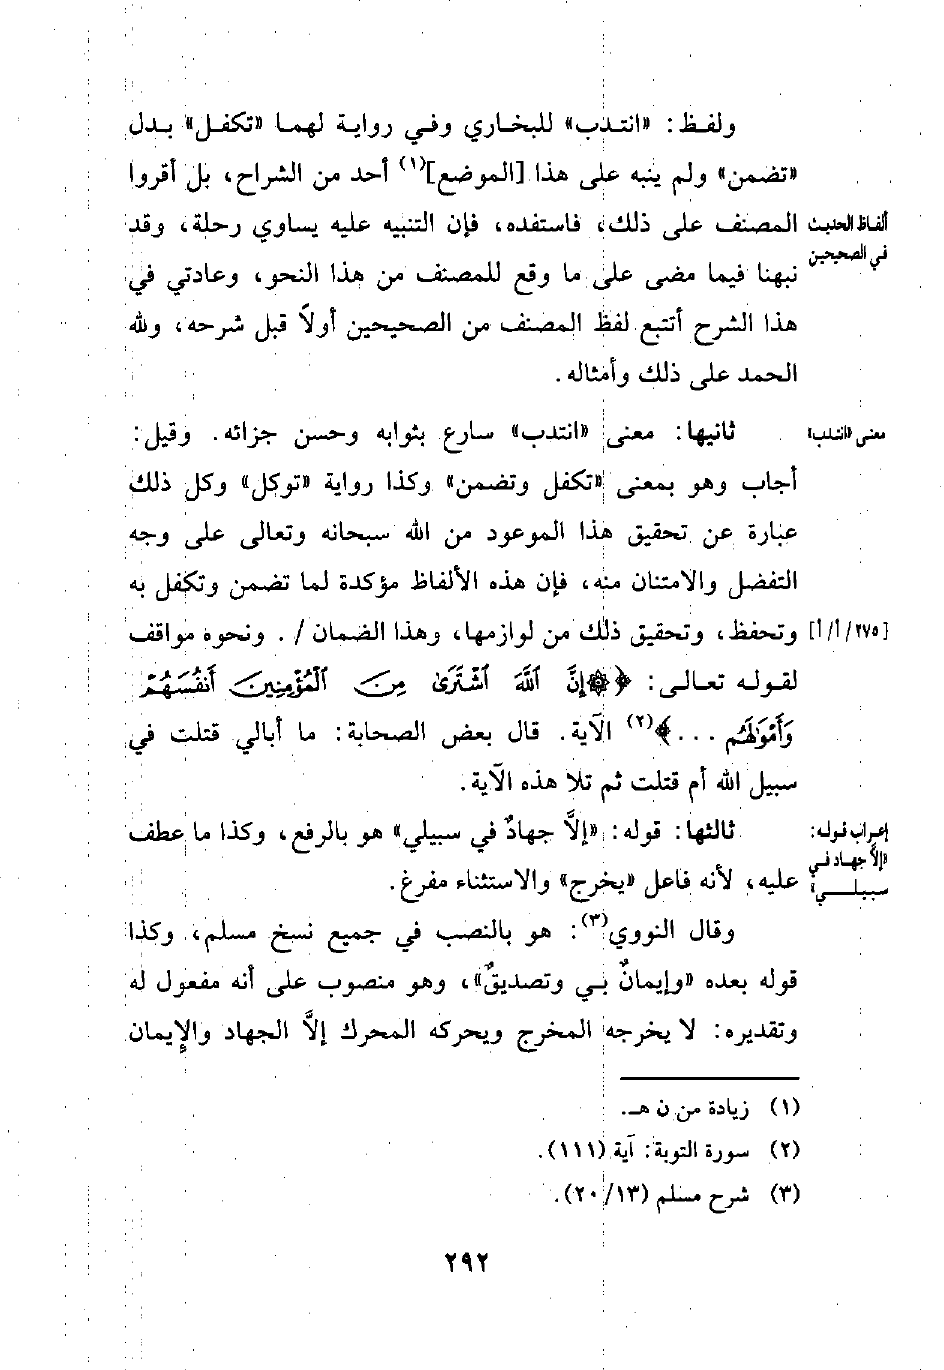 ولفظ: «انتدب» للبخاري وفي رواية لهما «تكفل» بدل
«تضمن» ولم ينبه على هذا [الموضع](١) أحد من الشراح، بل أقروا
ألفاظ الحديث
في الصحيحين
المصنف على ذلك، فاستفده، فإن التنبيه عليه يساوي رحلة، وقد
نبهنا فيما مضى على ما وقع للمصنف من هذا النحو، وعادتي في
هذا الشرح أتتبع لفظ المصنف من الصحيحين أولاً قبل شرحه، ولله
الحمد على ذلك وأمثاله.
معنى «انتدب»
ثانيها: معنى «انتدب» سارع بثوابه وحسن جزائه. وقيل:
أجاب وهو بمعنى «تكفل وتضمن» وكذا رواية «توكل» وكل ذلك
عبارة عن تحقيق هذا الموعود من الله سبحانه وتعالى على وجه
التفضل والامتنان منه، فإن هذه الألفاظ مؤكدة لما تضمن وتكفل به
[٢٧٥/أ/أ] وتحفظ، وتحقيق ذلك من لوازمها، وهذا الضمان /. ونحوه مواقف
لقوله تعالى: ﴿۞إِنَّ ٱللَّهَ ٱشْتَرَىٰ مِنَ ٱلْمُؤْمِنِينَ أَنفُسَهُمْ
وَأَمْوَٰلَهُم ...﴾(٢) الآية. قال بعض الصحابة: ما أبالي قتلت في
سبيل الله أم قتلت ثم تلا هذه الآية.
إعراب قوله:
«إلاَّ جهاد في
سبيلي»
ثالثها: قوله: «إلاَّ جهادٌ في سبيلي» هو بالرفع، وكذا ما عطف
عليه، لأنه فاعل «يخرج» والاستثناء مفرغ.
وقال النووي(٣): هو بالنصب في جميع نسخ مسلم، وكذا
قوله بعده «وإيمانٌ بي وتصديقٌ»، وهو منصوب على أنه مفعول له
وتقديره: لا يخرجه المخرج ويحركه المحرك إلاَّ الجهاد والإيمان
(١) زيادة من ن هـ.
(٢) سورة التوبة: آية (١١١).
(٣) شرح مسلم (٢٠/١٣).
٢٩٢